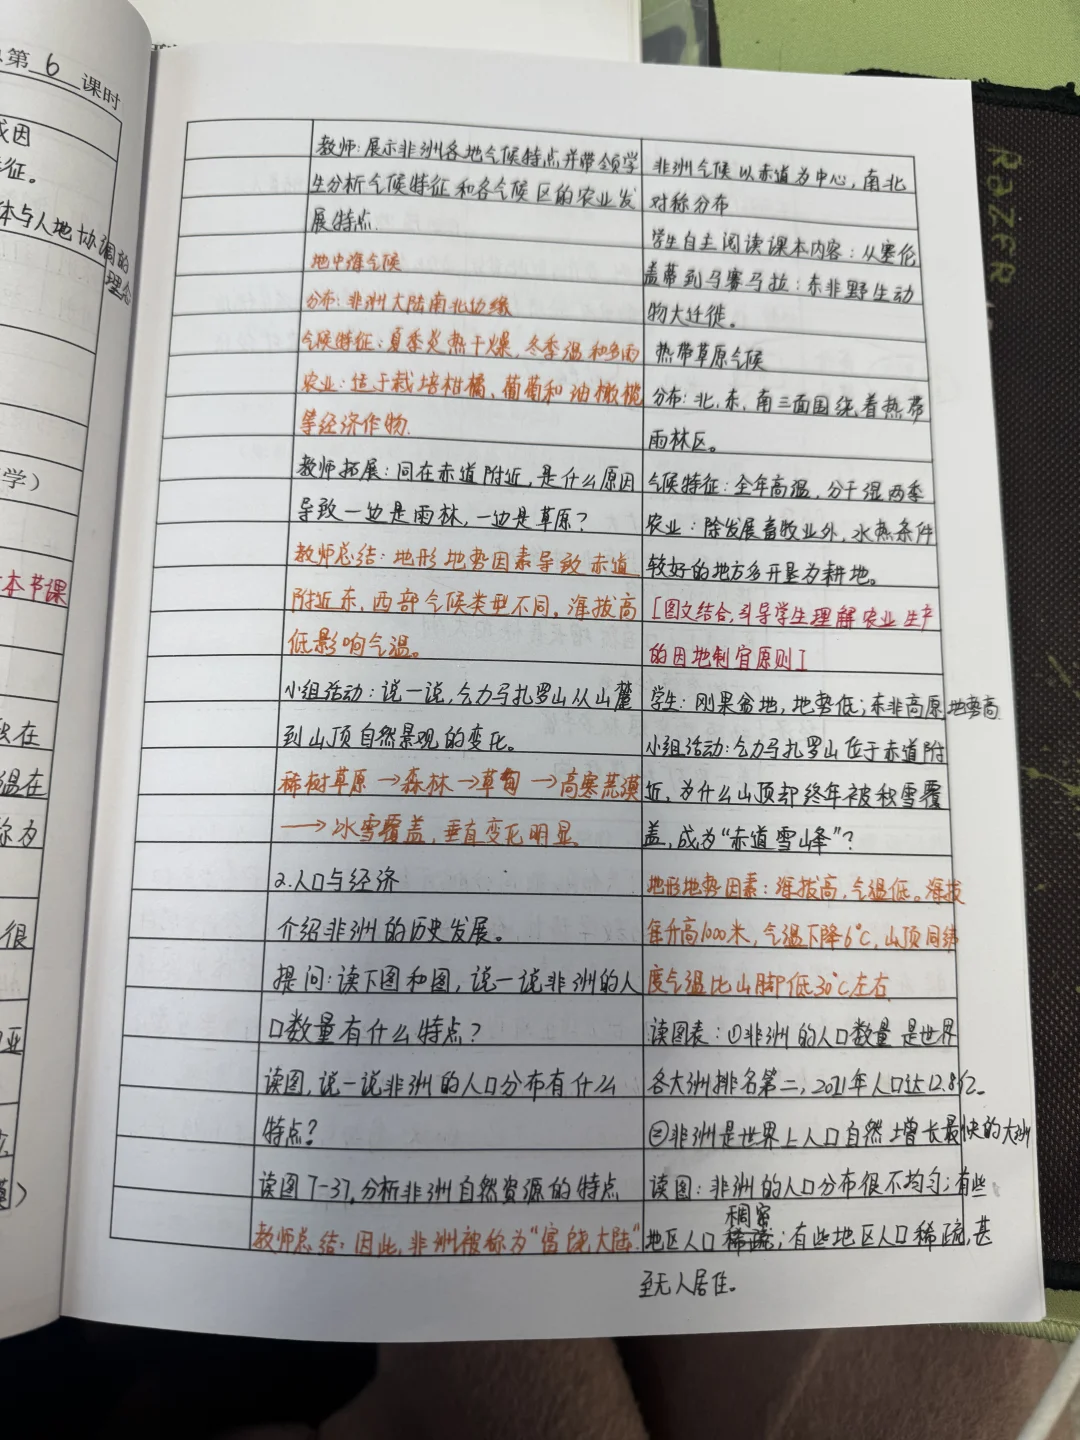 第 6 课时
成因
征。
体与人地协调的
理念
学）
本节课
在
温在
称为
很
亚
教师：展示非洲各地气候特点并带领学
生分析气候特征和各气候区的农业发
展特点.
地中海气候
分布：非洲大陆南北边缘
气候特征：夏季炎热干燥，冬季温和多雨
农业：适于栽培柑橘、葡萄和油橄榄
等经济作物.
教师拓展：同在赤道附近，是什么原因
导致一边是雨林，一边是草原？
教师总结：地形地势因素导致赤道
附近东，西部气候类型不同，海拔高
低影响气温。
小组活动：说一说，乞力马扎罗山从山麓
到山顶自然景观的变化。
稀树草原→森林→草甸→高寒荒漠
→冰雪覆盖，垂直变化明显
2.人口与经济
介绍非洲的历史发展。
提问：读下图和图，说一说非洲的人
口数量有什么特点？
读图，说一说非洲的人口分布有什么
特点？
读图7-37，分析非洲自然资源的特点
教师总结：因此，非洲被称为“富饶大陆”.
非洲气候以赤道为中心，南北
对称分布
学生自主阅读课本内容：从塞伦
盖蒂到马赛马拉：东非野生动
物大迁徙。
热带草原气候
分布：北、东、南三面围绕着热带
雨林区。
气候特征：全年高温，分干湿两季
农业：除发展畜牧业外，水热条件
较好的地方多开垦为耕地。
[图文结合，引导学生理解农业生产
的因地制宜原则]
学生：刚果盆地，地势低；东非高原地势高
小组活动：乞力马扎罗山位于赤道附
近，为什么山顶却终年被积雪覆
盖，成为“赤道雪山峰”？
地形地势因素：海拔高，气温低。海拔
每升高1000米，气温下降6°C，山顶同纬
度气温比山脚低30°C左右
读图表：①非洲的人口数量是世界
各大洲排名第二，2021年人口达12.8亿。
②非洲是世界上人口自然增长最快的大洲
读图：非洲的人口分布很不均匀；有些
稠密
地区人口稀疏；有些地区人口稀疏，甚
至无人居住。
RAZER